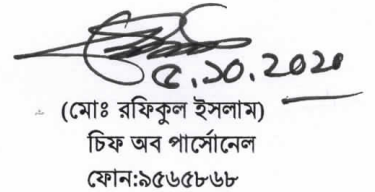 ৫.১০.২০২০
(মোঃ রফিকুল ইসলাম)
চিফ অব পার্সোনেল
ফোন:৯৫৬৫৮৬৮